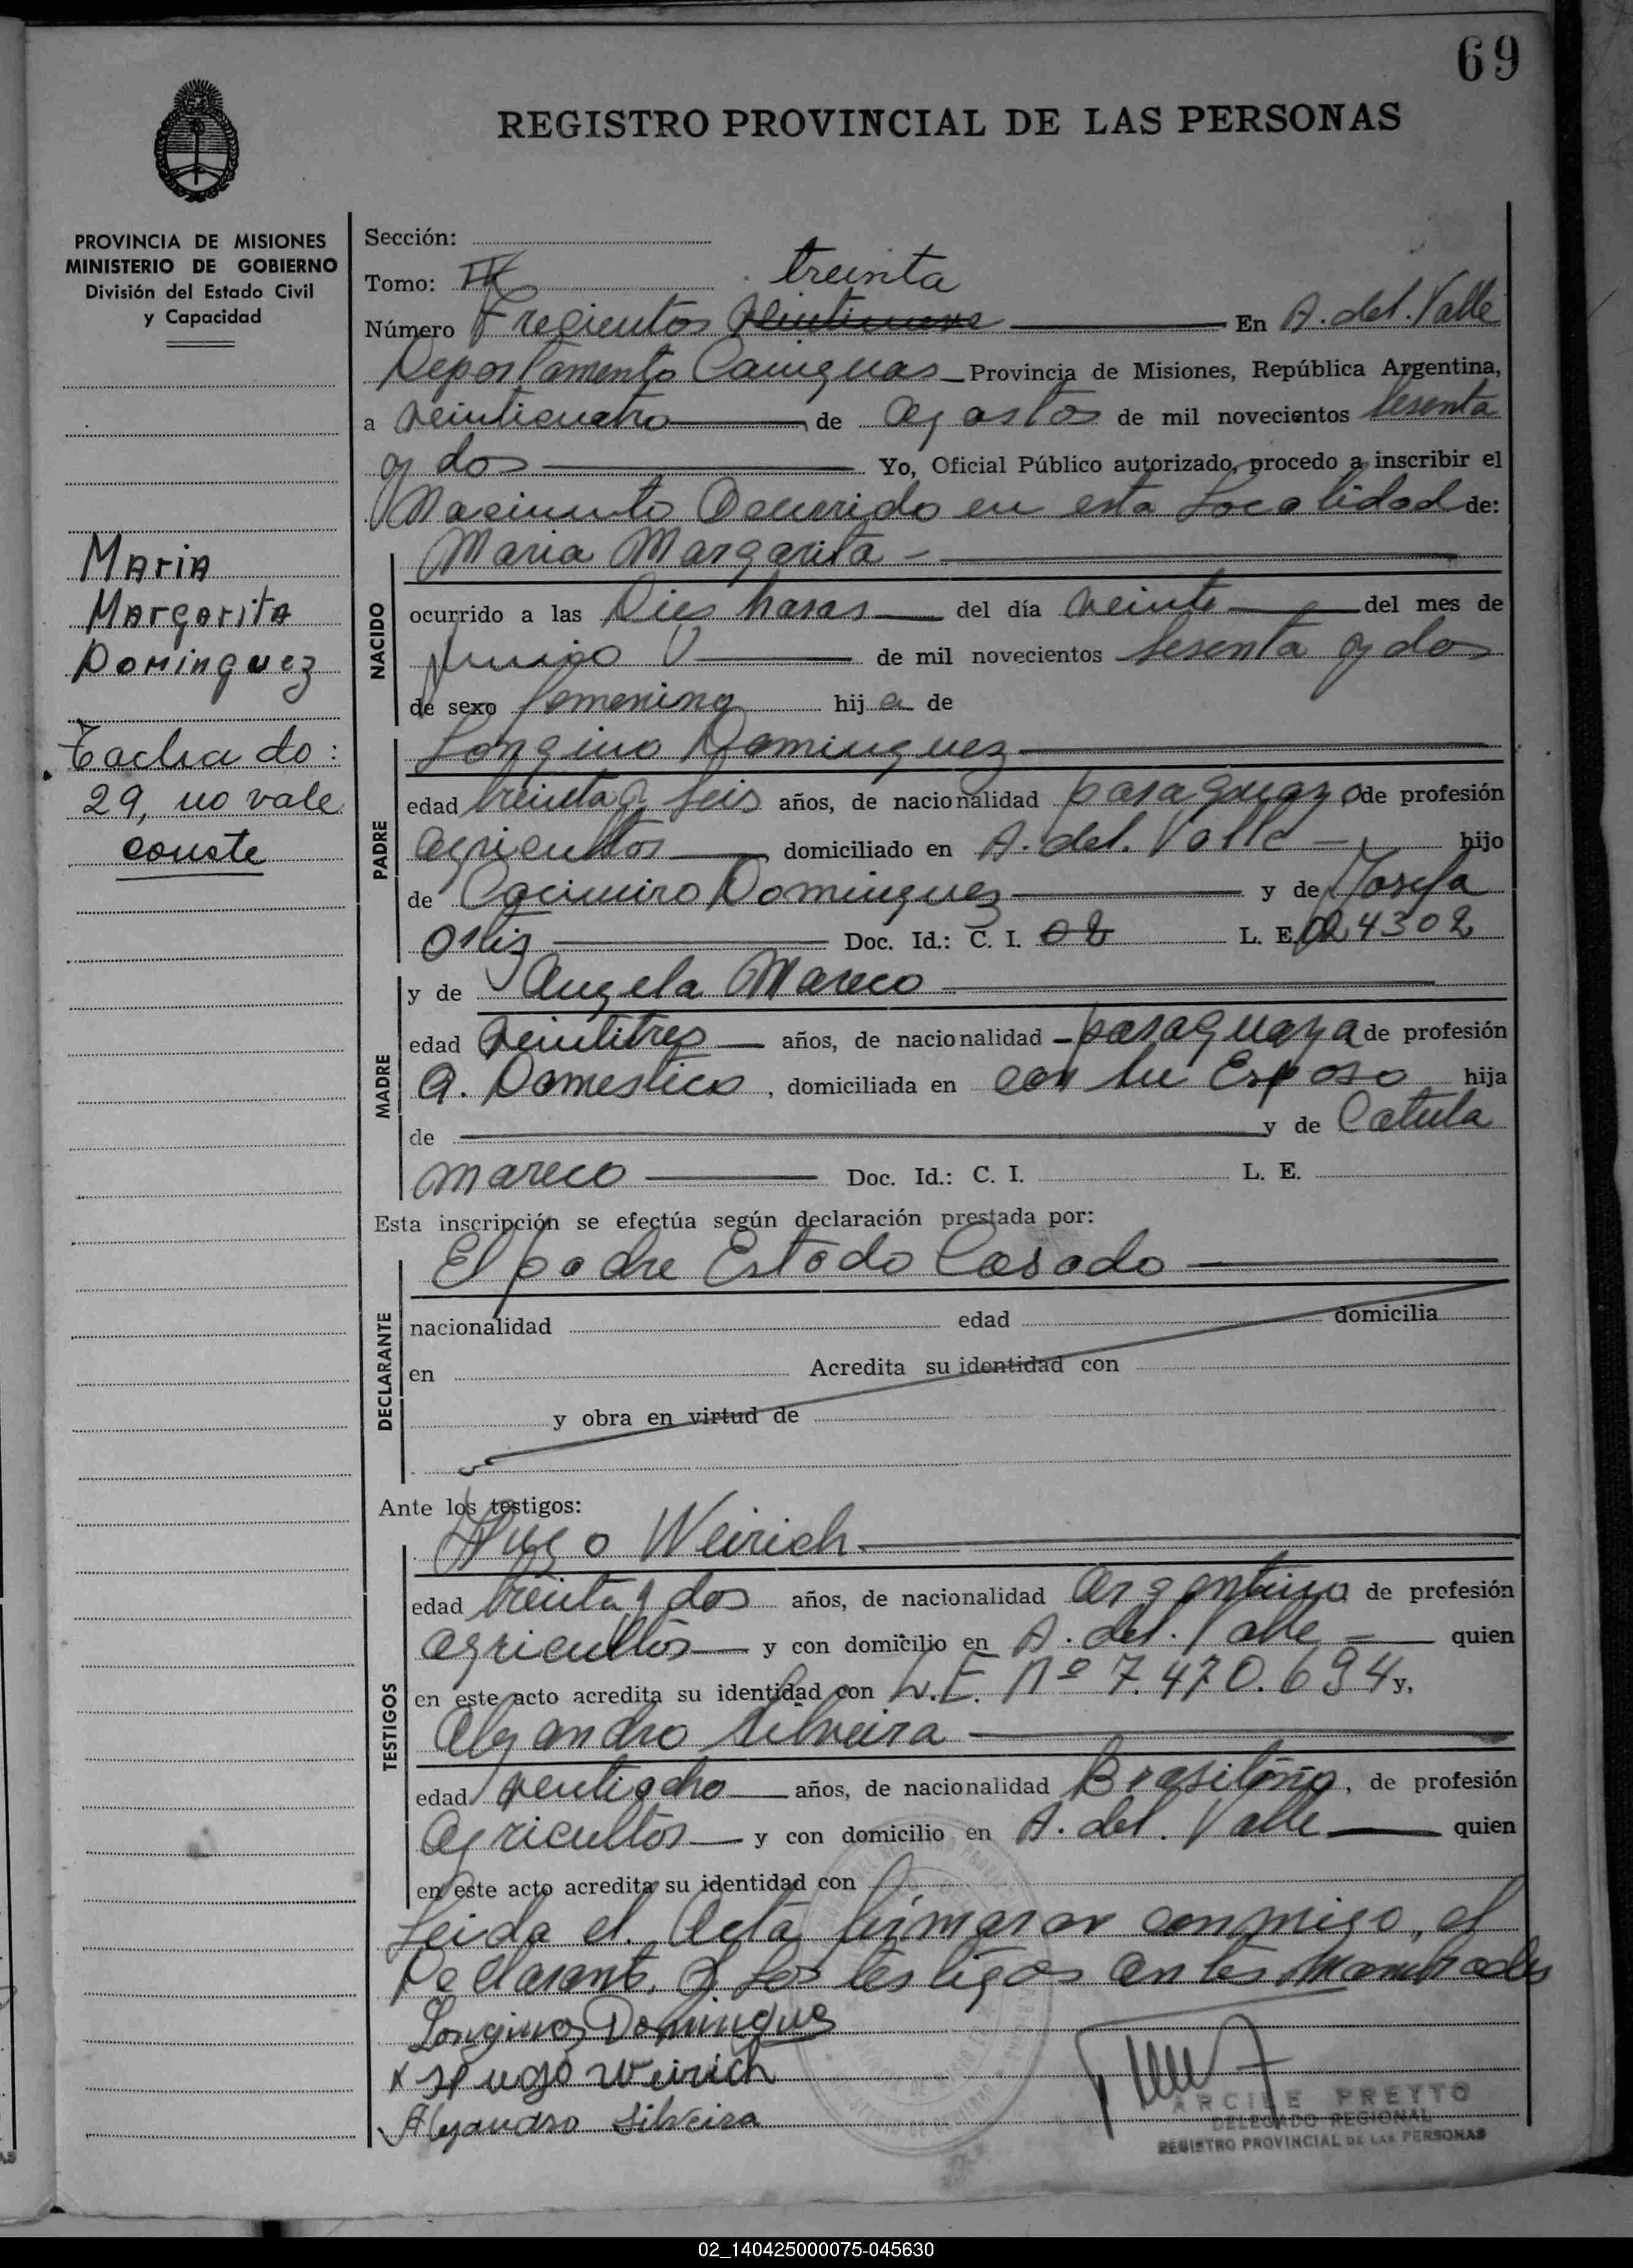 69
REGISTRO PROVINCIAL DE LAS PERSONAS
PROVINCIA DE MISIONES
MINISTERIO DE GOBIERNO
División del Estado Civil
y Capacidad
Maria
Margarita
Dominguez
Tachado:
29, no vale
conste
Sección:
Tomo: IV
treinta
Número Trecientos veintinueve En A. del. Valle
Departamento Cainguas Provincia de Misiones, República Argentina,
a veinticuatro de agosto de mil novecientos sesenta
y dos Yo, Oficial Público autorizado, procedo a inscribir el
Nacimiento Ocurrido en esta Localidad de:
NACIDO
Maria Margarita
ocurrido a las Dies horas del día veinte del mes de
Junio de mil novecientos sesenta y dos
de sexo femenino hija de
PADRE
Longino Dominguez
edad treinta y seis años, de nacionalidad paraguayo de profesión
agricultor domiciliado en A. del. Valle hijo
de Cacimiro Dominguez y de Josefa
Ortiz Doc. Id.: C. I. 02 L. E. 024302
MADRE
y de Angela Mareco
edad veintitres años, de nacionalidad paraguaya de profesión
Q. Domestico, domiciliada en con su Esposo hija
de y de Catula
mareco Doc. Id.: C. I. L. E.
Esta inscripción se efectúa según declaración prestada por:
DECLARANTE
El padre Estado Casado
nacionalidad edad domicilia
en Acredita su identidad con
y obra en virtud de
Ante los testigos:
TESTIGOS
Hugo Weirich
edad treinta y dos años, de nacionalidad argentino de profesión
agricultor y con domicilio en A. del. Valle quien
en este acto acredita su identidad con L.E. Nº 7.470.694 y,
Alejandro Silveira
edad ventiocho años, de nacionalidad Brasileño, de profesión
agricultor y con domicilio en A. del. Valle quien
en este acto acredita su identidad con
Leida el. Acta firmaron conmigo, el
Declarante. y los testigos antes Nombrados
Longinos Domingues
x Hugo Weirich
Alejandro Silveira
ARCILE PREYTO
DELEGADO REGIONAL
REGISTRO PROVINCIAL DE LAS PERSONAS
02_140425000075-045630